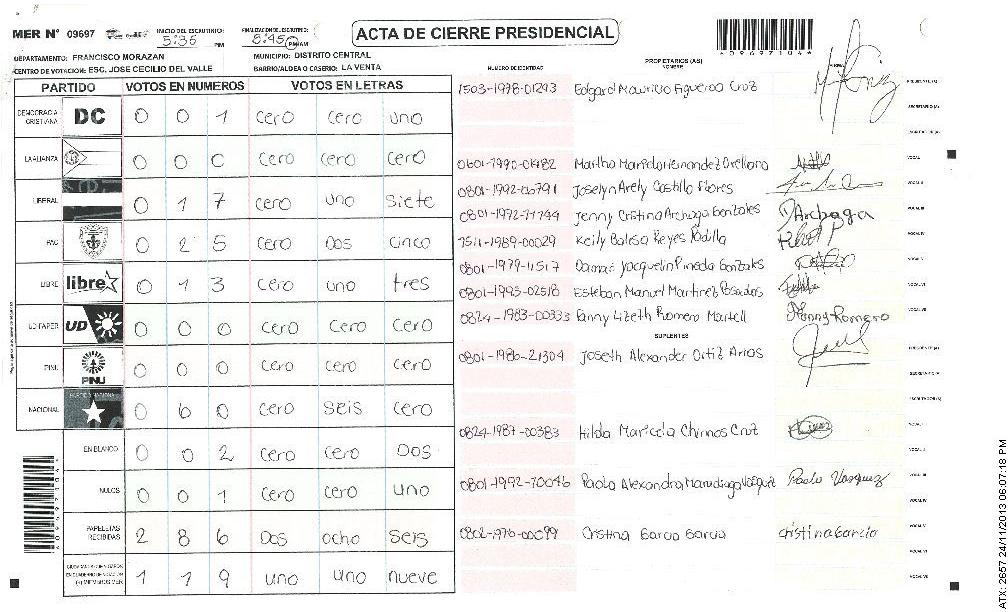 MER N° 09697
INICIO DEL ESCRUTINIO:
5:36 PM
FINALIZACION ESCRUTINIO:
8:45 PM/AM
ACTA DE CIERRE PRESIDENCIAL
*09697104*
DEPARTAMENTO: FRANCISCO MORAZAN
MUNICIPIO: DISTRITO CENTRAL
CENTRO DE VOTACION: ESC. JOSE CECILIO DEL VALLE
BARRIO/ALDEA O CASERIO: LA VENTA
PARTIDO VOTOS EN NUMEROS VOTOS EN LETRAS
DEMOCRACIA CRISTIANA DC 0 0 1 cero cero uno
LA ALIANZA 0 0 0 cero cero cero
LIBERAL 0 1 7 cero uno siete
PAC 0 2 5 cero Dos cinco
LIBRE libre 0 1 3 cero uno tres
UD FAPER UD 0 0 0 cero cero cero
PINU PINU 0 0 0 cero cero cero
NACIONAL 0 6 0 cero seis cero
EN BLANCO 0 0 2 cero cero Dos
NULOS 0 0 1 cero cero uno
PAPELETAS RECIBIDAS 2 8 6 Dos ocho seis
1 1 9 uno uno nueve
NUMERO DE IDENTIDAD
PROPIETARIOS (AS)
NOMBRE
1503-1978-01293 Edgard Mauricio Figueroa Cruz
PRESIDENTE (A)
SECRETARIO (A)
ESCRUTADOR (A)
0601-1990-01482
VOCAL I
0801-1992-06791 Joselyn Arely Castillo Flores
VOCAL II
0801-1972-11744 Jenny Cristina Archaga Gonzales D'Archaga
VOCAL III
1511-1989-00029 Keily Balesa Reyes Padilla
VOCAL IV
0801-1979-11517 Damari Yacquelin Pineda Gonzales
VOCAL V
0801-1993-02518 Esteban Manuel Martinez Posadas
VOCAL VI
0824-1983-00333 Fanny Lizeth Romero Martell Fanny Romero
VOCAL VII
SUPLENTES
0801-1986-21304 Joseth Alexander Ortiz Arias
PRESIDENTE (A)
SECRETARIO (A)
ESCRUTADOR (A)
0824-1987-00383 Hilda Maricela Chirinos Cruz
VOCAL I
VOCAL II
0801-1992-70046 Paola Alexandra Paola Vasquez
VOCAL III
VOCAL IV
0802-1976-00099 Cristina Garcia Garcia cristina Garcia
VOCAL V
VOCAL VI
VOCAL VII
ATX: 2657 24/11/2013 06:07:18 PM